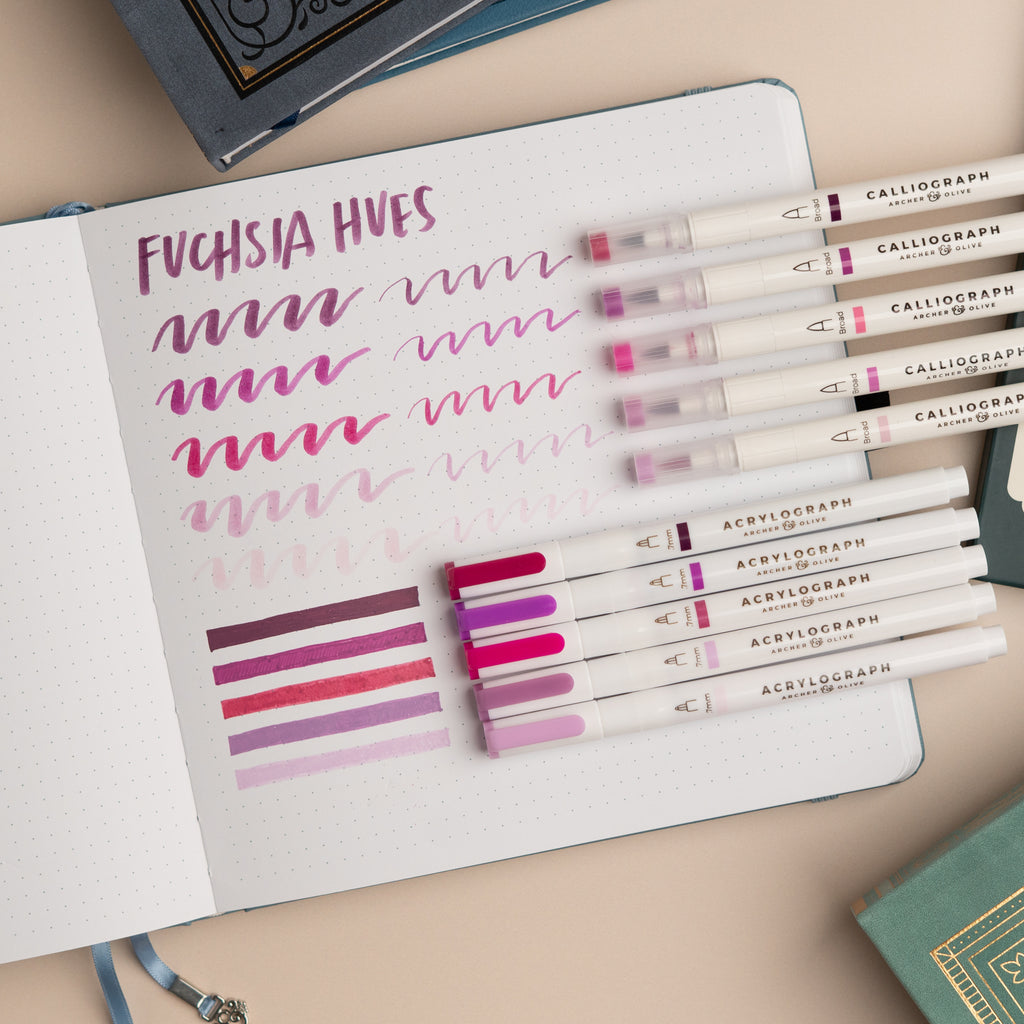 FUCHSIA HUES
CALLIOGRAPH
ARCHER OLIVE
Broad
CALLIOGRAPH
ARCHER OLIVE
Broad
CALLIOGRAPH
ARCHER OLIVE
Broad
CALLIOGRAPH
ARCHER OLIVE
Broad
CALLIOGRAPH
ARCHER OLIVE
Broad
ACRYLOGRAPH
ARCHER OLIVE
.7mm
ACRYLOGRAPH
ARCHER OLIVE
.7mm
ACRYLOGRAPH
ARCHER OLIVE
.7mm
ACRYLOGRAPH
ARCHER OLIVE
.7mm
ACRYLOGRAPH
ARCHER OLIVE
.7mm